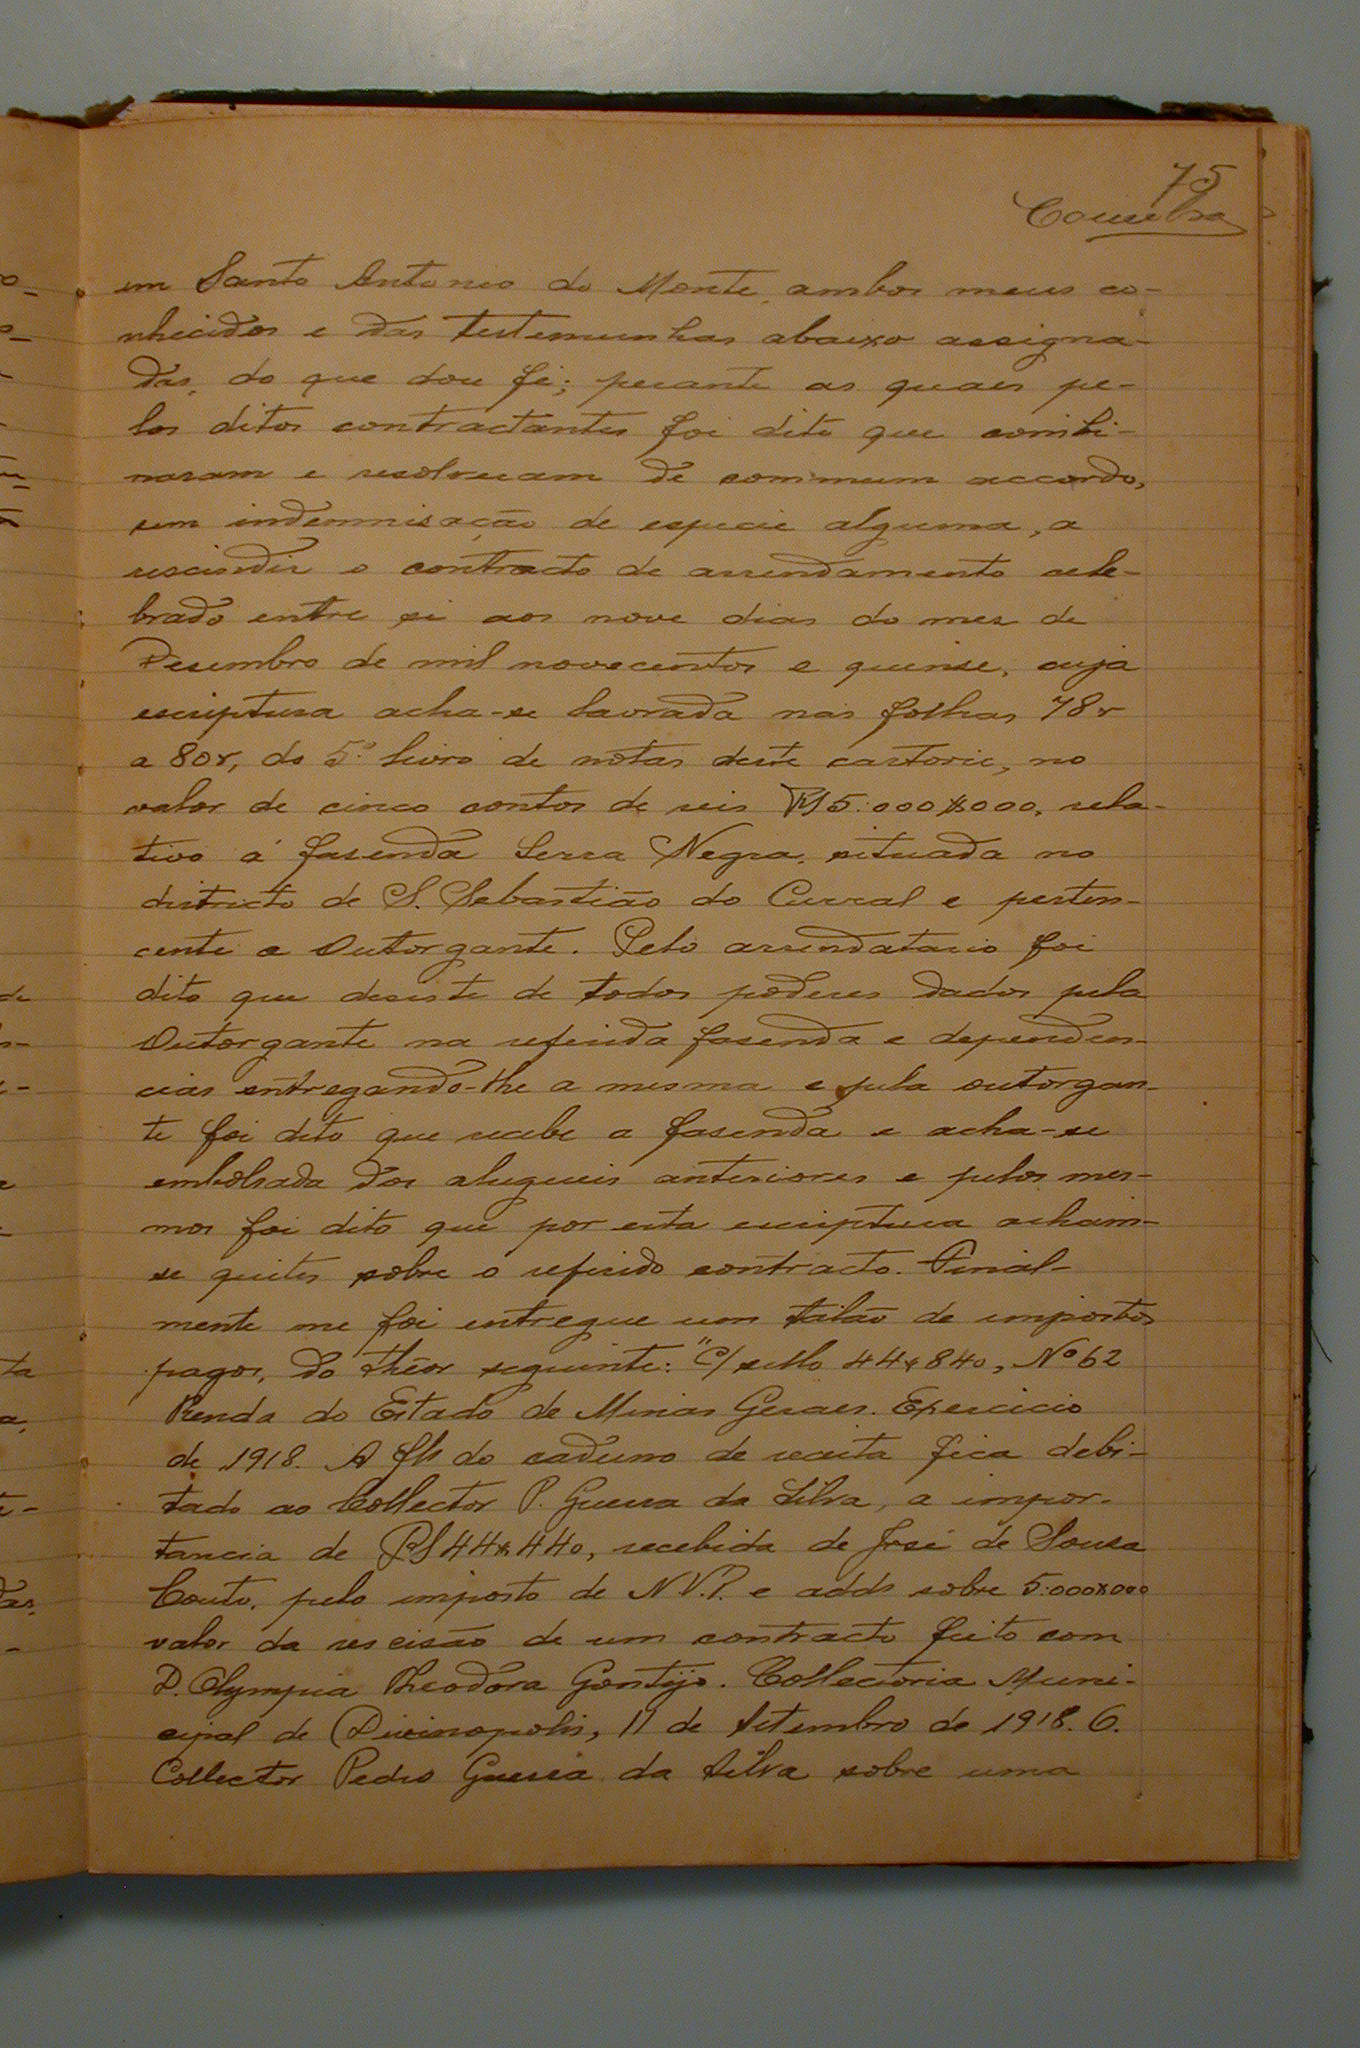 75
Coimbra
em Santo Antonio do Monte, ambos meus co-
nhecidos e das testemunhas abaixo assigna-
das, do que dou fé; perante as quaes pe-
los ditos contractantes foi dito que combi-
naram e resolveram de commum accordo,
sem indemnisação de especie alguma, a
rescindir o contracto de arrendamento cele-
brado entre si aos nove dias do mez de
Desembro de mil novecentos e quinse, cuja
escriptura acha-se lavrada nas folhas 78v
a 80v, do 5º livro de notas deste cartorio, no
valor de cinco contos de reis Rs 5:000$000, rela-
tivo á fasenda Serra Negra, situada no
districto de S. Sebastião do Curral e perten-
cente a Outorgante. Pelo arrendatario foi
dito que desiste de todos poderes dados pela
Outorgante na referida fasenda e dependen-
cias entregando-lhe a mesma e pela outorgan-
te foi dito que recebe a fasenda e acha-se
embolsada dos alugueis anteriores e pelos mes-
mos foi dito que por esta escriptura acham-
se quites sobre o referido contracto. Final-
mente me foi entregue um talão de impostos
pagos, do théor seguinte: "C/ sello 44$840, Nº 62
Renda do Estado de Minas Geraes. Exercicio
de 1918. A fls do caderno de receita fica debi-
tado ao Collector P. Guerra da Silva, a impor-
tancia de Rs 44$440, recebida de José de Sousa
Couto, pelo imposto de N.V.P. e adds sobre 5:000$000
valor da rescisão de um contracto feito com
D. Olympia Theodora Gontijo. Collectoria Muni-
cipal de Divinopolis, 11 de Setembro de 1918. O.
Collector Pedro Guerra da Silva sobre uma